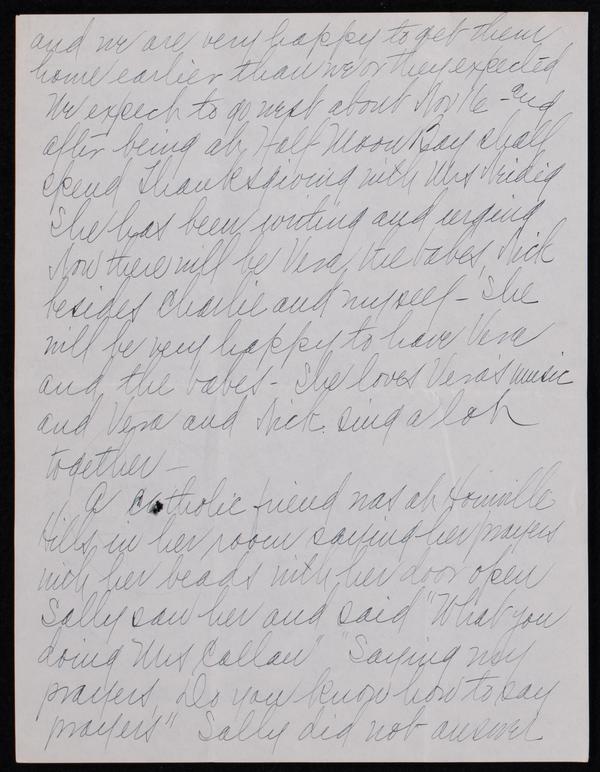 and we are very happy to get them
home earlier than we or they expected
We expect to go west about Nov 16 - and
after being at Half Moon Bay shall
spend Thanksgiving with Mrs
She has been writing and urging
Now there will be Vera, the babes, Nick
besides Charlie and myself - She
will be very happy to have Vera
and the babes - She loves Vera's music
and Vera and Nick sing a lot
together -
A Catholic friend was at
Hills in her room saying her prayers
with her beads with her door open
Sally saw her and said "What you
doing Mrs Callan" "Saying my
prayers, Do you know how to say
prayers" Sally did not answer